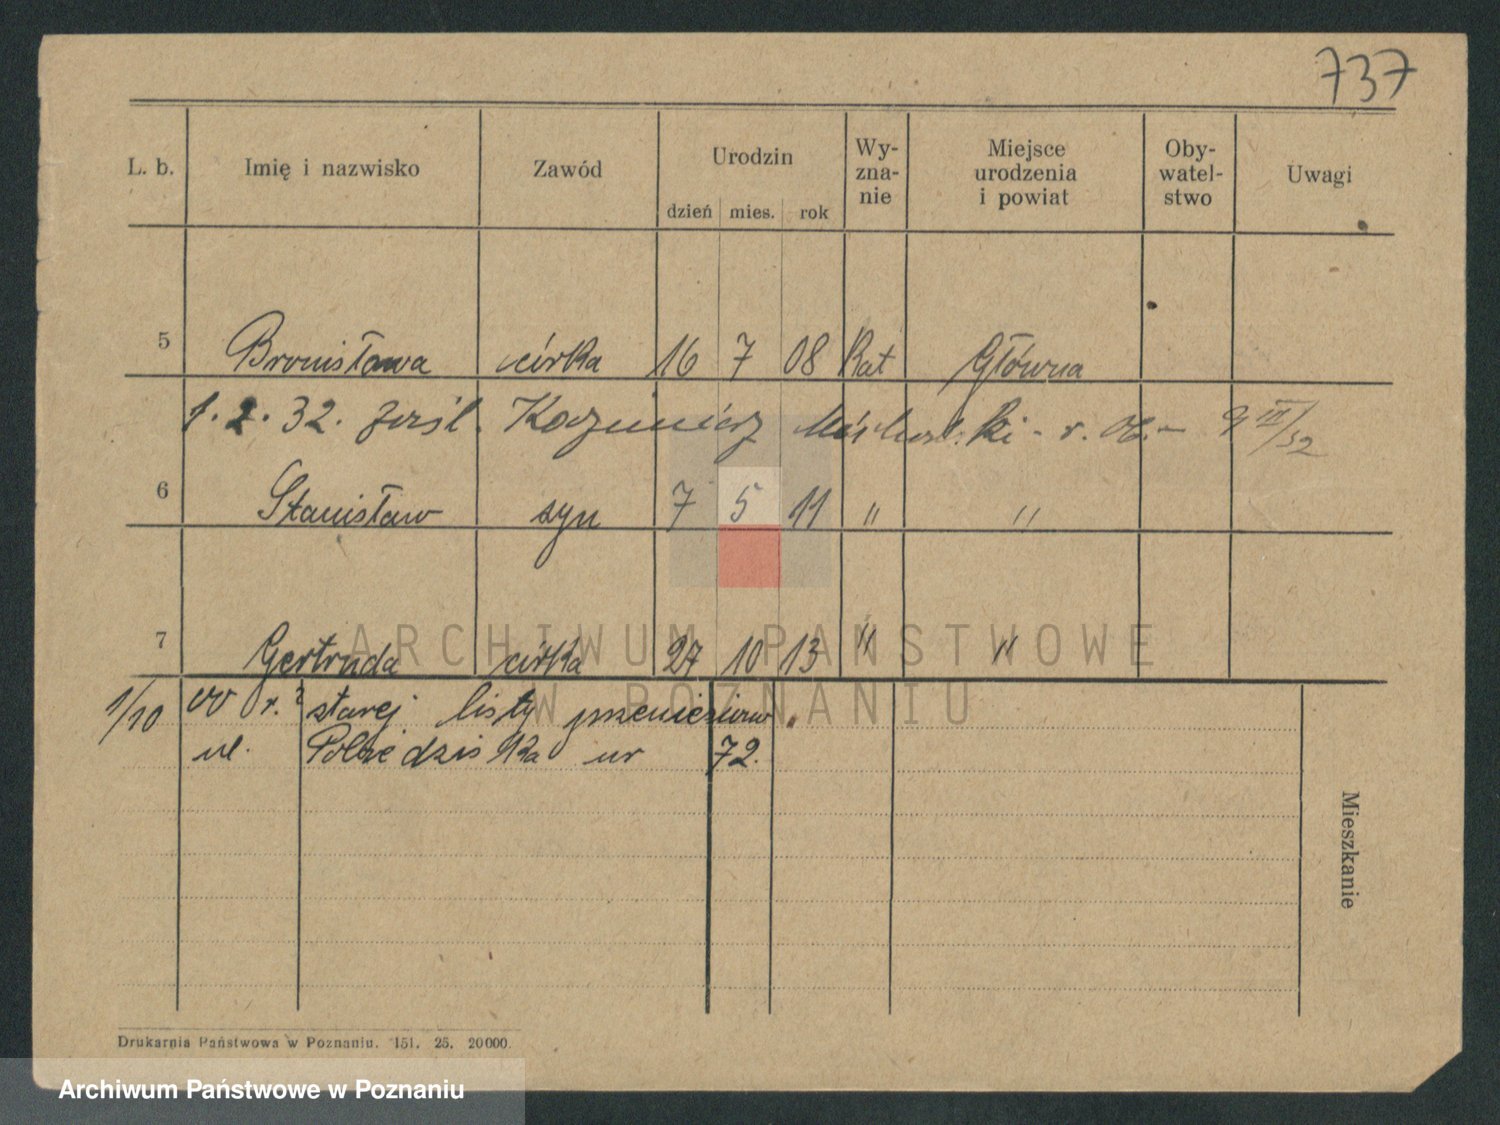 737
L. b. Imię i nazwisko Zawód Urodzin dzień mies. rok Wy-zna-nie Miejsce urodzenia i powiat Oby-watel-stwo Uwagi
5 Bronisława córka 16 7 08 Kat Główna
1. 2. 32. Kazimierz r. 06. - 9 III/32
6 Stanisław syn 7 5 11 " "
7 Gertruda córka 27 10 13 " "
1/10 r. starej listy
ul. nr 72.
Mieszkanie
Drukarnia Państwowa w Poznaniu. 151. 25. 20000.
ARCHIWUM PAŃSTWOWE
W POZNANIU
Archiwum Państwowe w Poznaniu